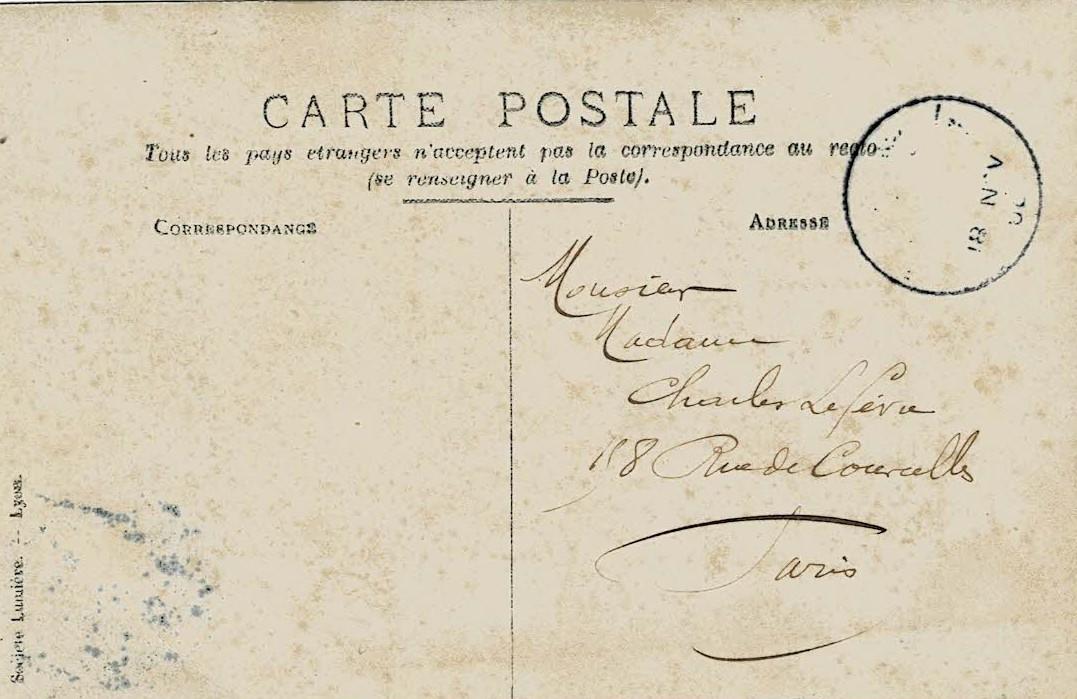 CARTE POSTALE
Tous les pays etrangers n'acceptent pas la correspondance au recto
(se renseigner à la Poste).
CORRESPONDANCE
ADRESSE
18 NOV
Monsieur
Madame
Charles Lefèvre
158 Rue de Courcelles
Paris
Société Lumière. -- Lyon.